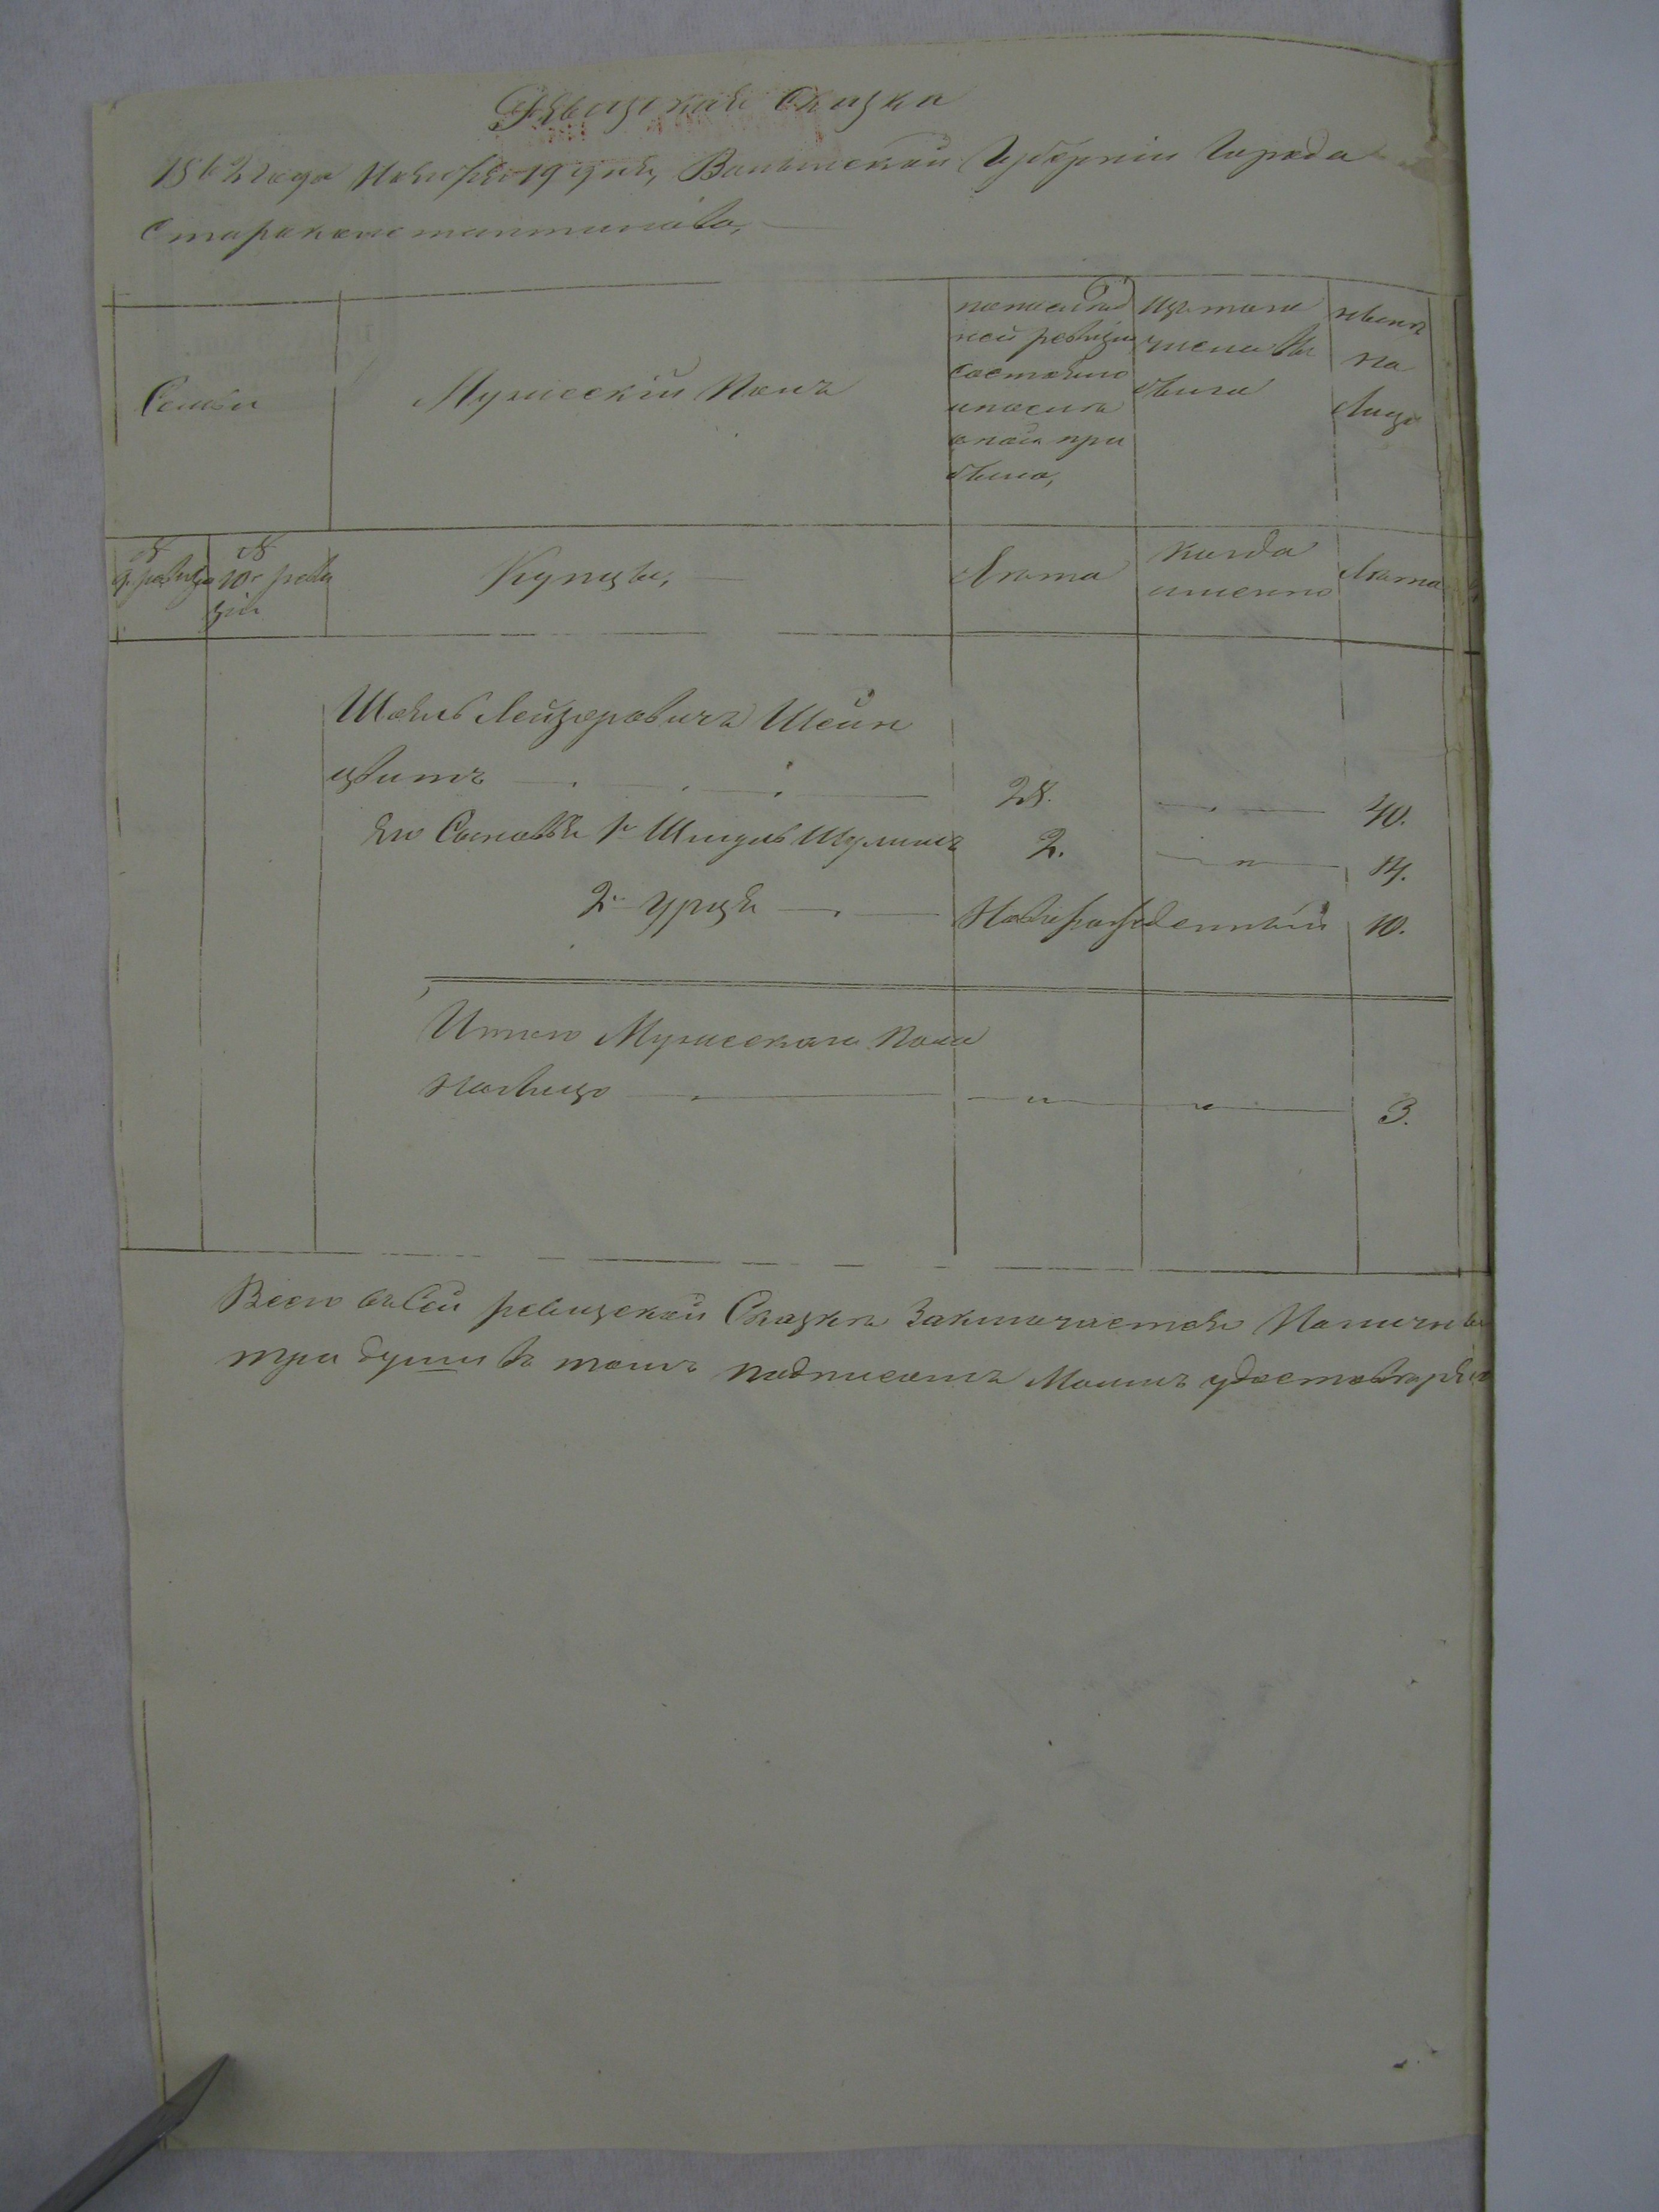 Ревизская Сказка
1862 года Ноября 19 дня, Волынской Губерніи Города
Староконстантинова,
Семьи
Мужескій Полъ
по послѣд
ней ревизіи
состояло
и послѣ
оной при
было,
Изъ того
числа вы
было
нынѣ
на
лицо
№
9й ревизіи
№
10й реви
зіи
Купцы,
Лѣта
Когда
именно
Лѣта
Лейзеровичъ Шейн
цвитъ 28. 40.
Его Сыновья 1й 2. 14.
2й Новорожденный 10.
Итого Мужескаго Пола
На лицо 3.
Всего въ сей ревизской Сказкѣ Заключается Наличны
три души въ томъ подписомъ Моимъ удостоверяю